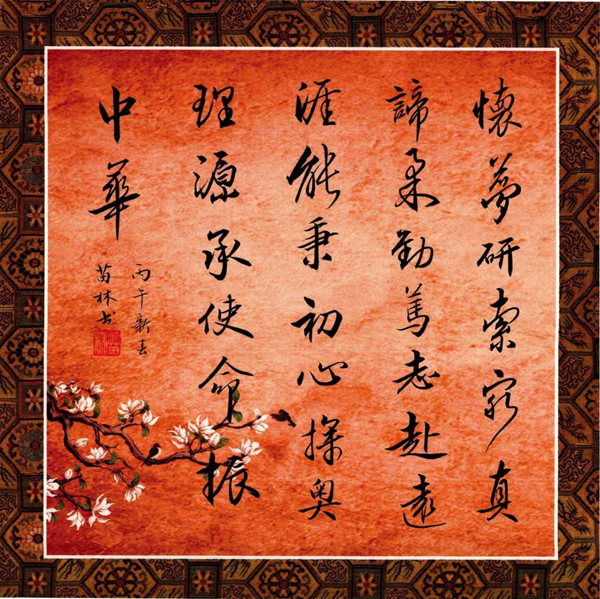 懷夢研索窮真
諦柔勤篤志赴遠
涯能秉初心探奥
理源承使命振
中華
丙午新春
苗林书